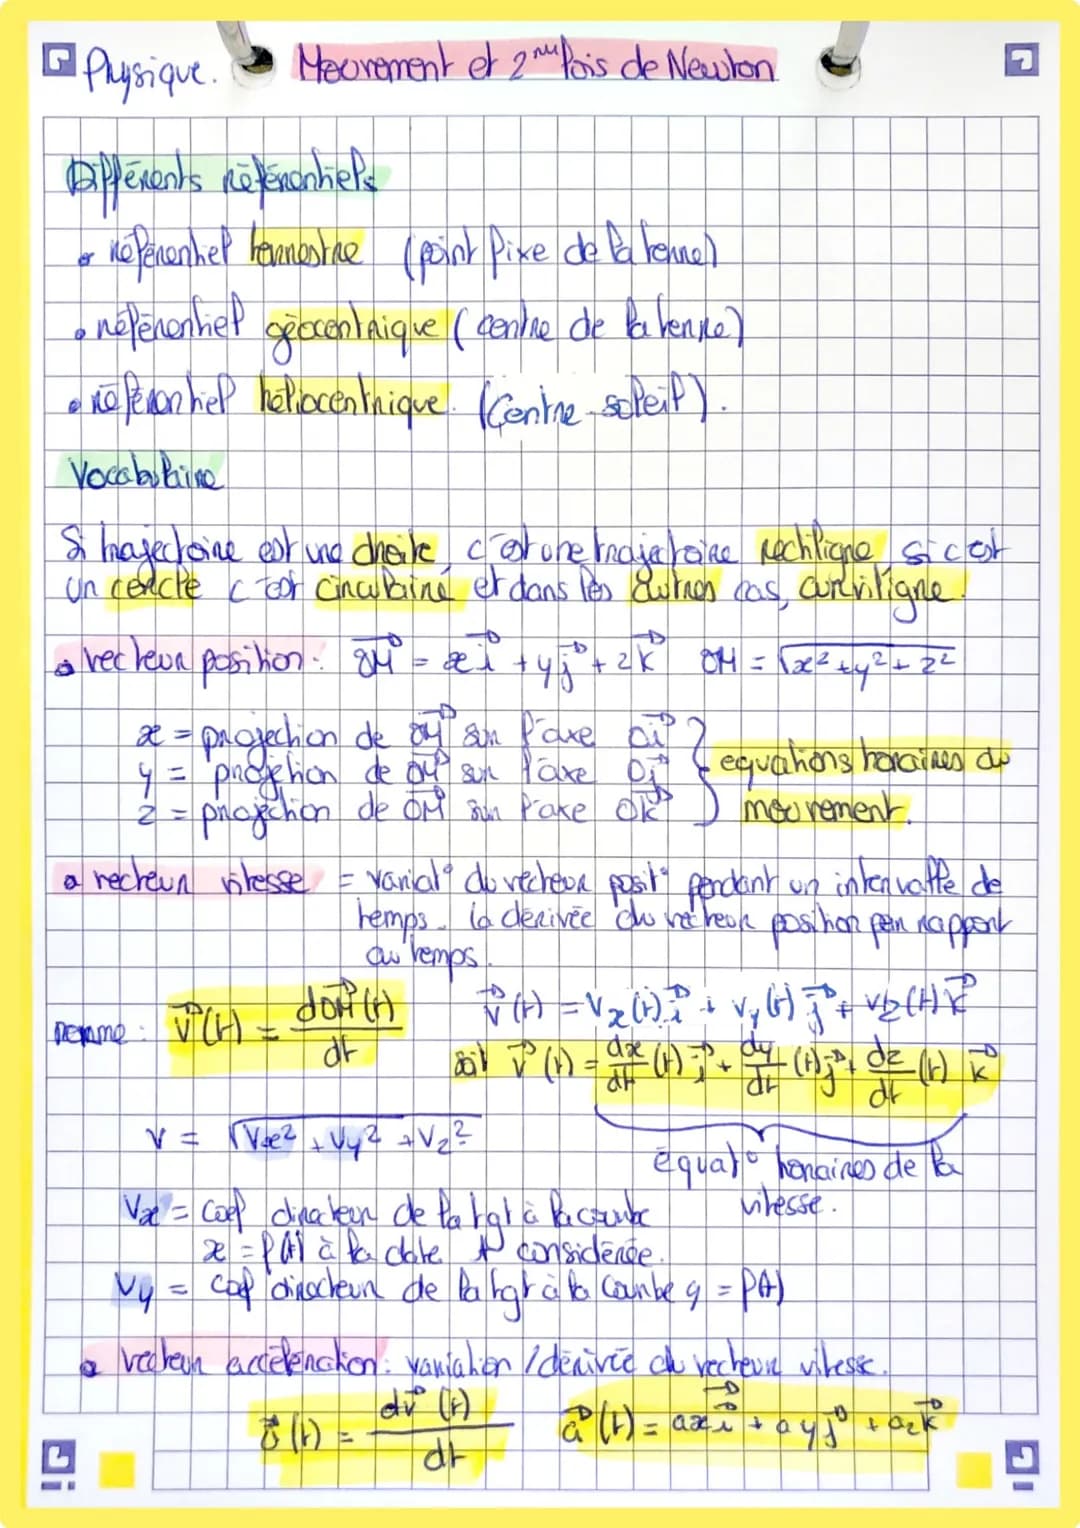 Physique.
Mouvement et 2nde lois de Newton
Différents référentiels
• référentiel terrestre (point fixe de la terre)
• référentiel géocentrique (centre de la terre)
• référentiel héliocentrique. (Centre soleil).
Vocabulaire
Si trajectoire est une droite, c'est une trajectoire rectiligne, si c'est
un cercle c'est circulaire et dans les autres cas, curviligne.
• vecteur position: \vec{OM} = x\vec{i} + y\vec{j} + z\vec{k} OM = √(x² + y² + z²)
x = projection de \vec{OM} sur l'axe O\vec{i}
y = projetion de \vec{OM} sur l'axe O\vec{j}
z = projection de \vec{OM} sur l'axe O\vec{k}
} équations horaires du
mouvement.
• vecteur vitesse = variat° du vecteur posit° pendant un intervalle de
temps. la dérivée du vecteur position par rapport
au temps.
\vec{v}(t) = d\vec{OM}(t)/dt
\vec{v}(t) = Vx(t)\vec{i} + Vy(t)\vec{j} + Vz(t)\vec{k}
soit \vec{v}(t) = dx/dt (t)\vec{i} + dy/dt (t)\vec{j} + dz/dt (t)\vec{k}
V = √(Vx² + Vy² + Vz²)
équat° horaires de la
vitesse.
Vx = coef directeur de la tgt à la courbe
x = f(t) à la date t considérée.
Vy = coef directeur de la tgt à la courbe y = f(t)
• vecteur accélération: variation / dérivée du vecteur vitesse.
\vec{a}(t) = d\vec{v}(t)/dt
\vec{a}(t) = ax\vec{i} + ay\vec{j} + az\vec{k}